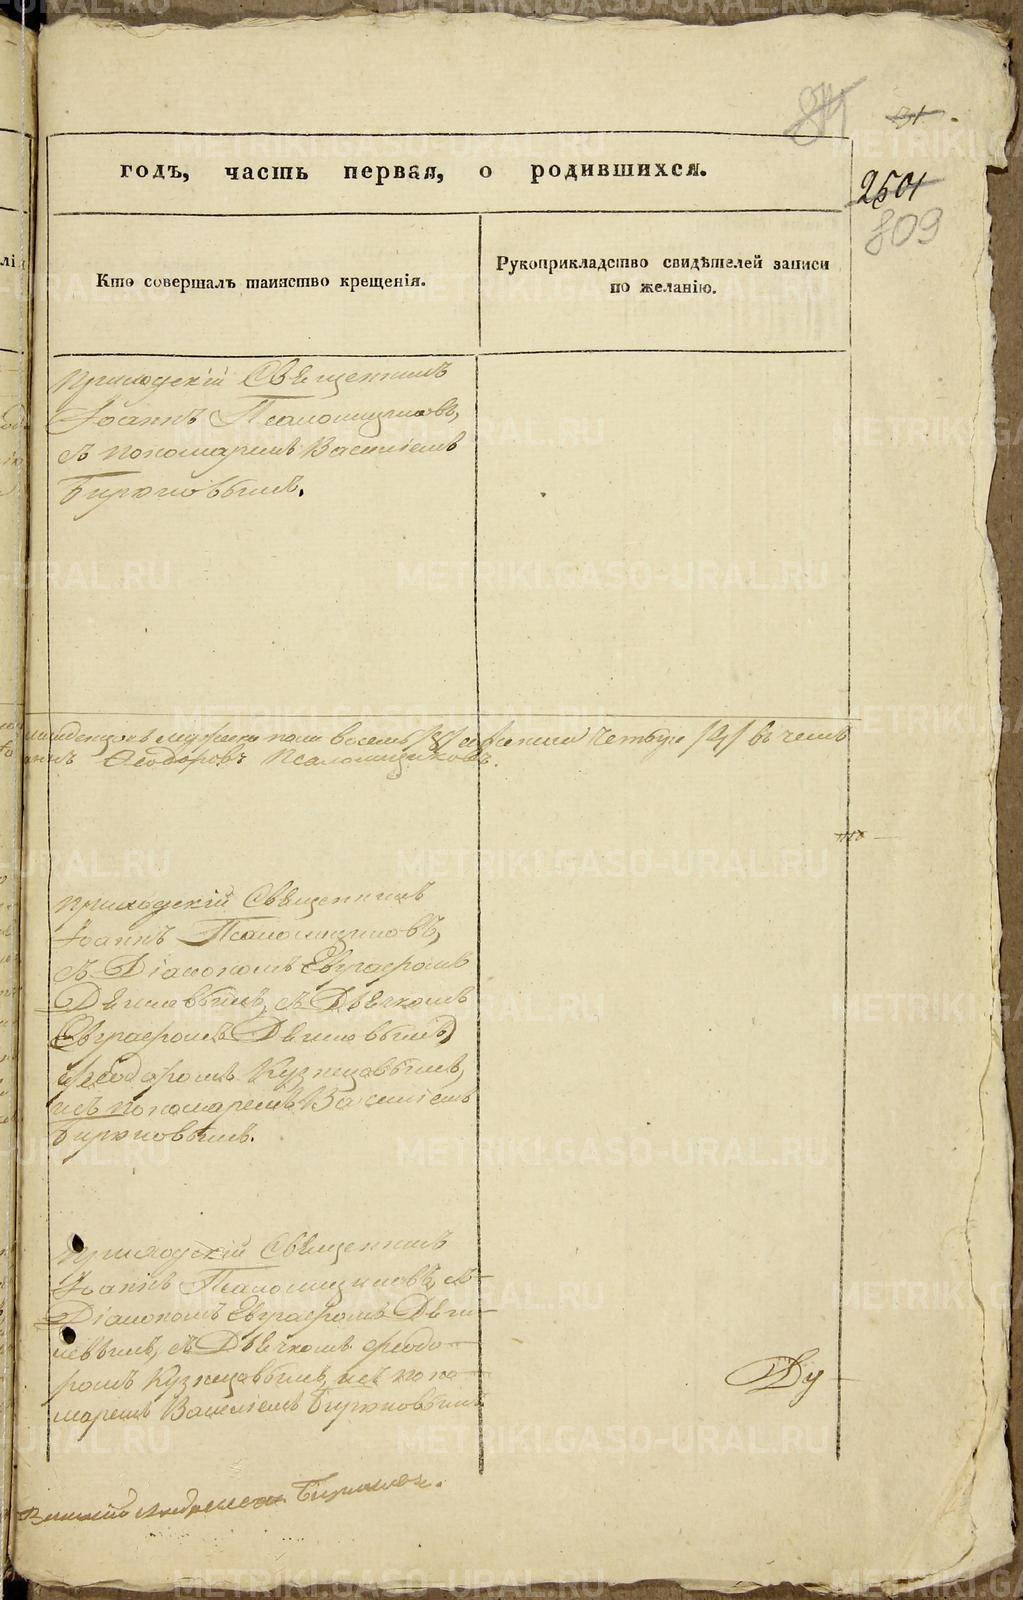 84
31
годъ, часть первая, о родившихся.
2501
809
Кто совершалъ таинство крещенія.
Рукоприкладство свидѣтелей записи
по желанію.
приходскій Священникъ
Іоаннъ Псаломщиковъ,
съ пономаремъ Василіемъ
Бирюковымъ.
младенцовъ мужеска пола восемь /8/ а женска четыре /4/ въ чемъ
Феодоровъ Псаломщиковъ.
приходскій Священникъ
Іоаннъ Псаломщиковъ,
съ Діакономъ Евграфомъ
съ Дьячкомъ
Евграфомъ
Феодоромъ Кузнецовымъ,
и съ пономаремъ Василіемъ
Бирюковымъ.
приходскій Священникъ
Іоаннъ Псаломщиковъ, съ
Діакономъ Евграфомъ
съ Дьячкомъ Феодо-
ромъ Кузнецовымъ, и съ поно-
маремъ Василіемъ Бирюковымъ
Ду-
Бирюковъ.
METRIKI.GASO-URAL.RU